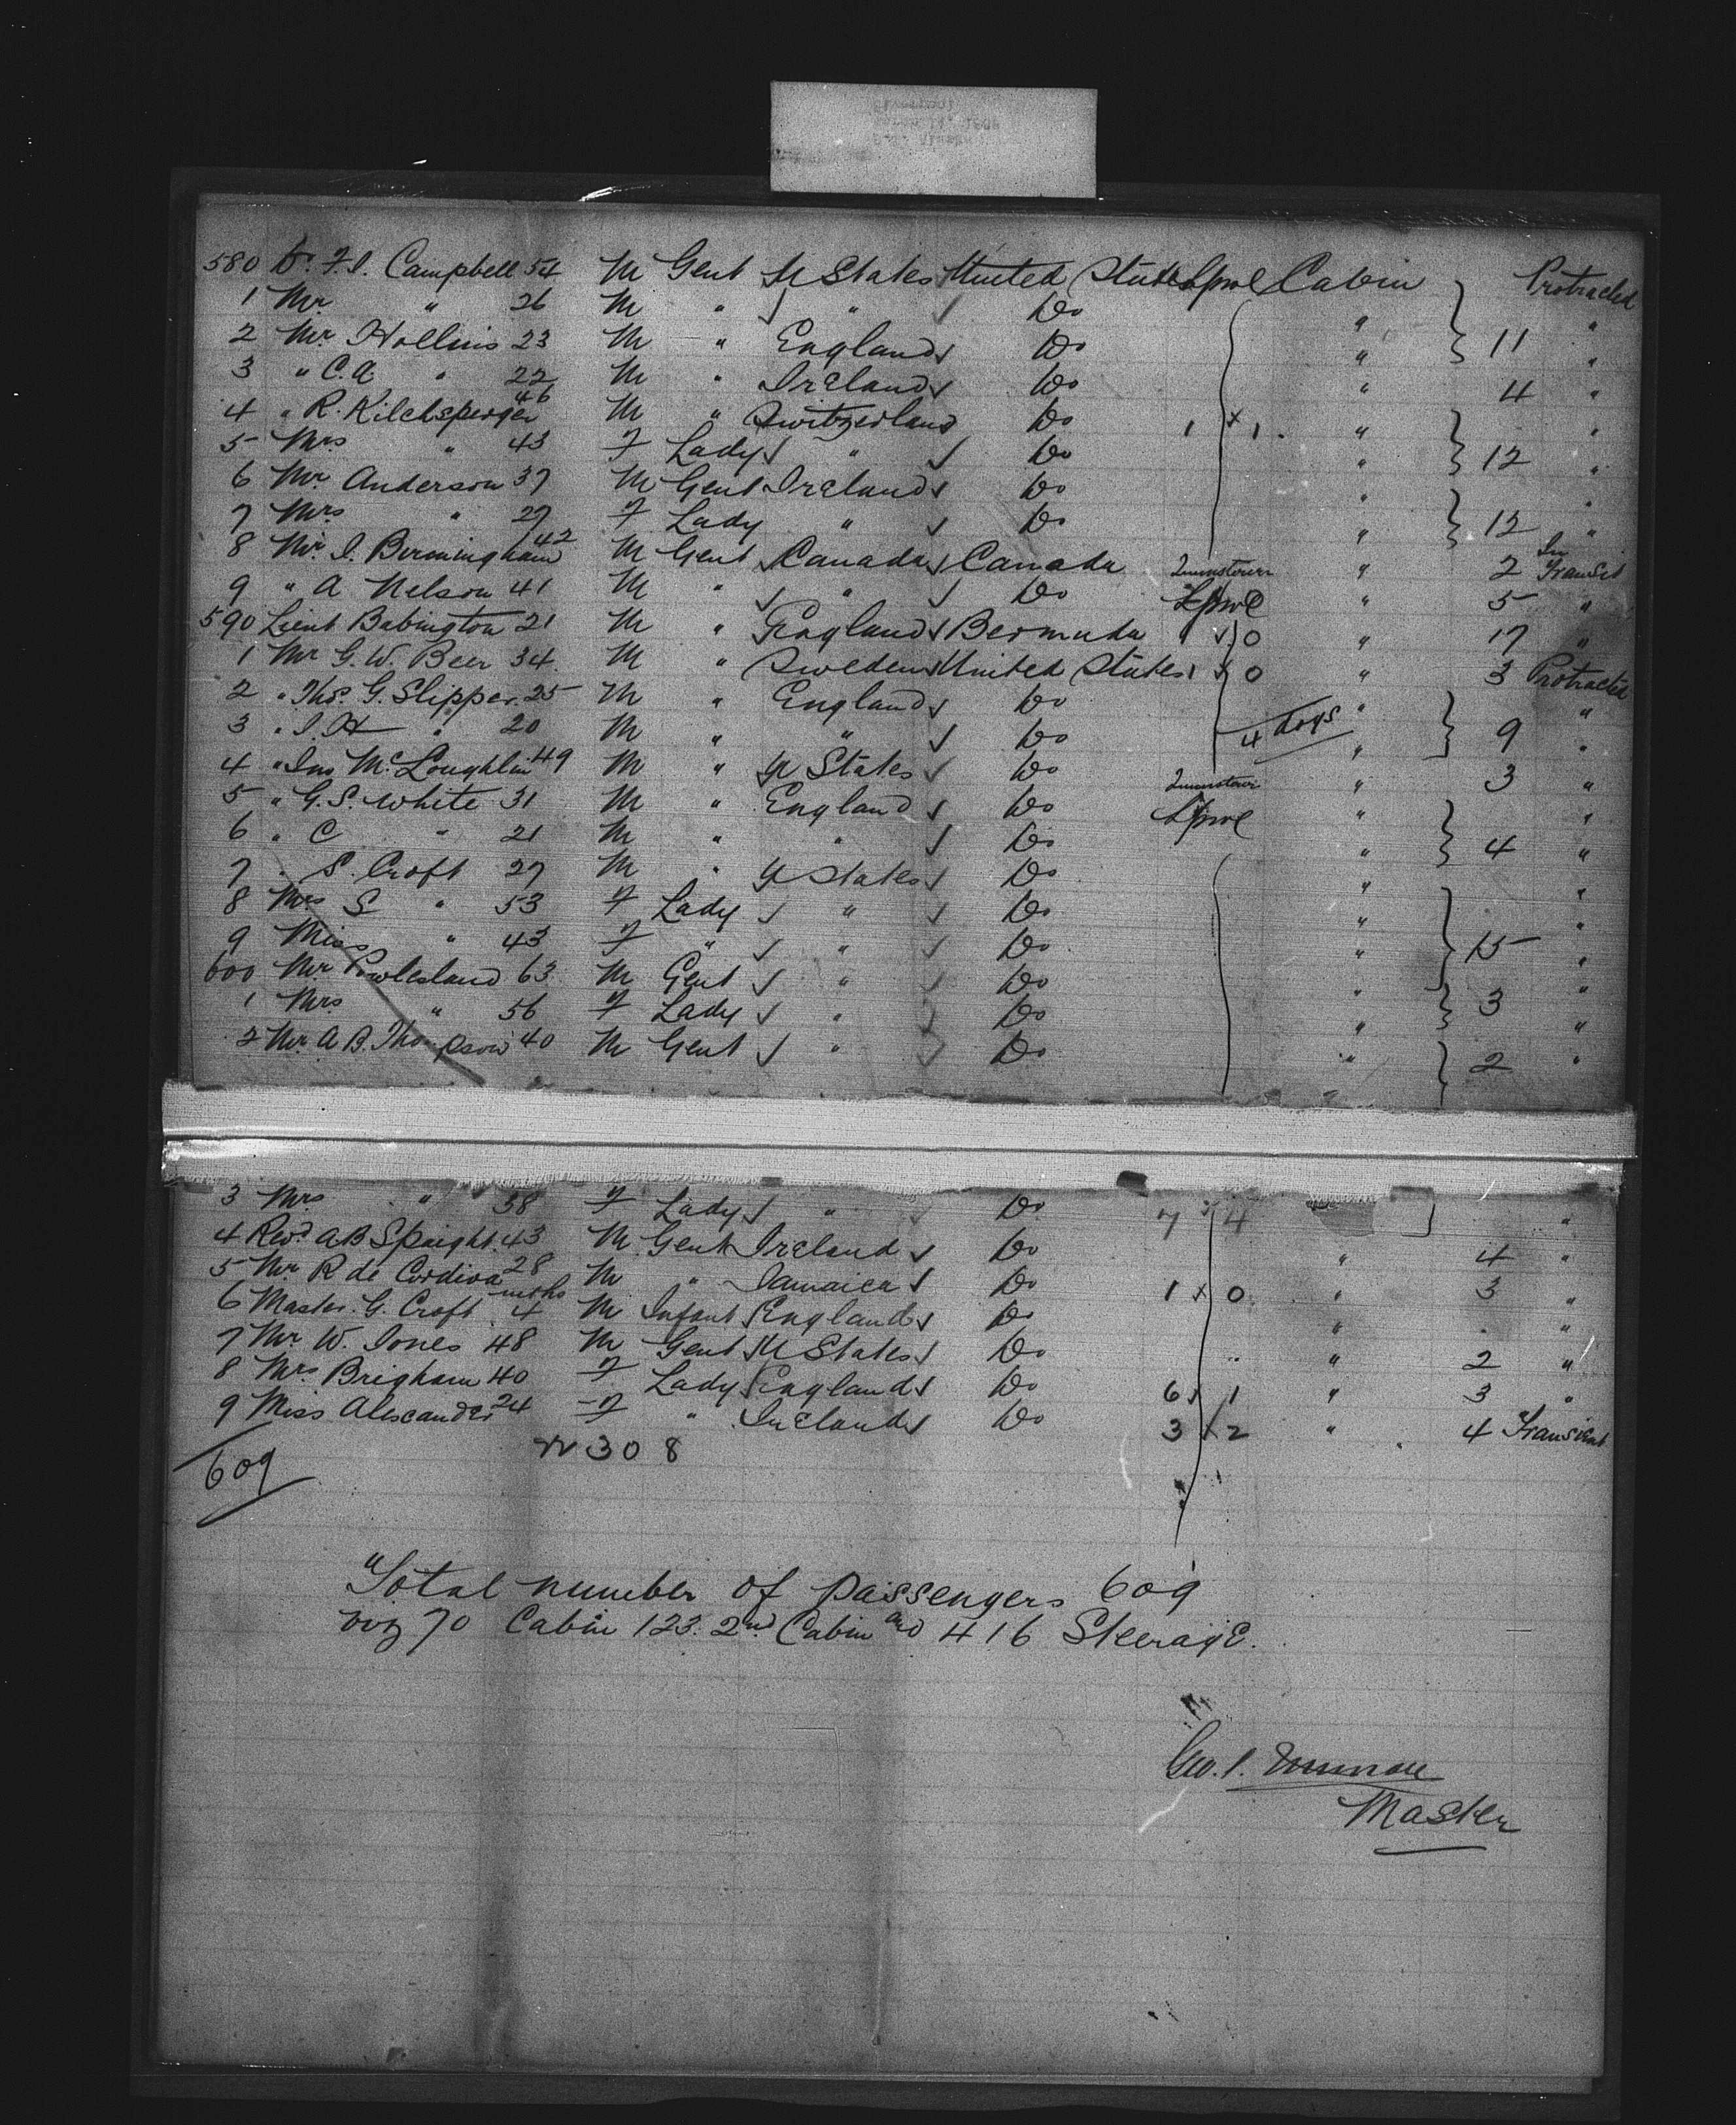 580 Dr. F.I. Campbell 54 M Gent U States United States Lpool Cabin Protracted
1 Mr " 26 M " " Do " "
2 Mr Hollins 23 M " England Do " 11 "
3 " C.A. " 22 M " Ireland Do " 4 "
4 " R. Kilchsperger 46 M " Switzerland Do 1 x 1 " "
5 Mrs " 43 F Lady " Do " 12 "
6 Mr Anderson 37 M Gent Ireland Do " "
7 Mrs " 27 F Lady " Do " 12 "
8 Mr I. Bermingham 42 M Gent Canada Canada Queenstown " 2 In Transit
9 " A Nelson 41 M " " Do Lpool " 5 "
590 Lieut Babington 21 M " England Bermuda 0 " 17 "
1 Mr G.W. Beer 34 M " Sweden United States 0 " 3 Protracted
2 " Thos. G. Slipper 25 M " England Do " "
3 " I.H " 20 M " " Do 4 dogs " 9 "
4 " Jno McLoughlin 49 M " U States Do Queenstown " 3 "
5 " G.S. White 31 M " England Do Lpool " "
6 " C " 21 M " " Do " 4 "
7 " S. Croft 27 M " U States Do " "
8 Mrs S " 53 F Lady " Do " "
9 Miss " 43 F " " Do " 15 "
600 Mr Powlesland 63 M Gent " Do " "
1 Mrs " 56 F Lady " Do " 3 "
2 Mr A B. Thompson 40 M Gent " Do " 2 "
3 Mrs " 38 F Lady " Do 7 4 "
4 Revd. A B Speight 43 M Gent Ireland Do " 4 "
5 Mr R de Cordiva 28 M " Jamaica Do 1 x 0 " 3 "
6 Master G. Croft 4 mths M Infant England Do " "
7 Mr W. Jones 48 M Gent U States Do " 2 "
8 Mrs Brigham 40 F Lady England Do 6 1 " 3 "
9 Miss Alexander 24 F " Ireland Do 3 2 " 4 Transient
308
609
Total number of passengers 609
viz 70 Cabin 123. 2nd Cabin and 416 Steerage.
Geo. I.
Master